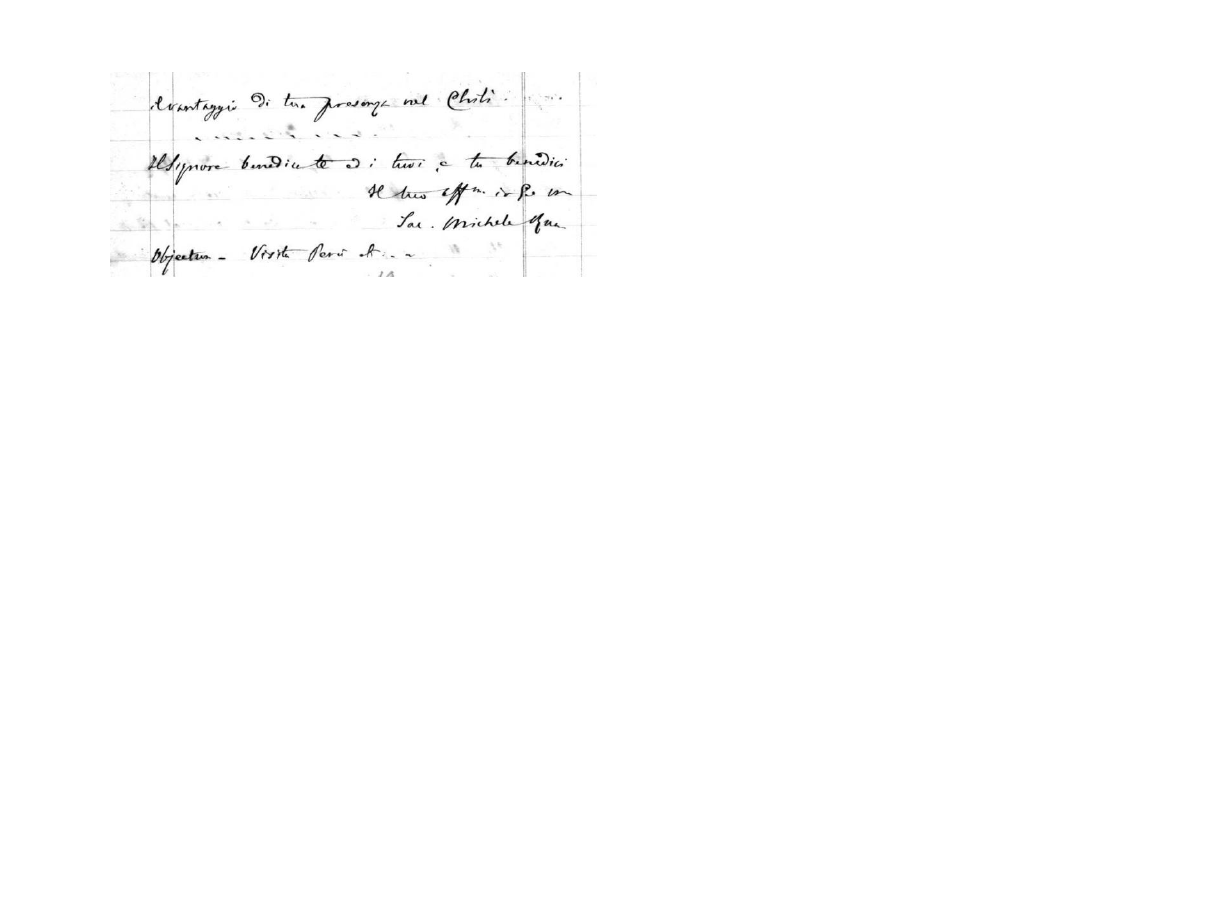 vantaggi di tua presenza nel Chilì.
Il Signore benedica te ed i tuoi, e tu benedici
Il tuo aff.mo in G. e M.
Sac. Michele Rua
Visita Perù